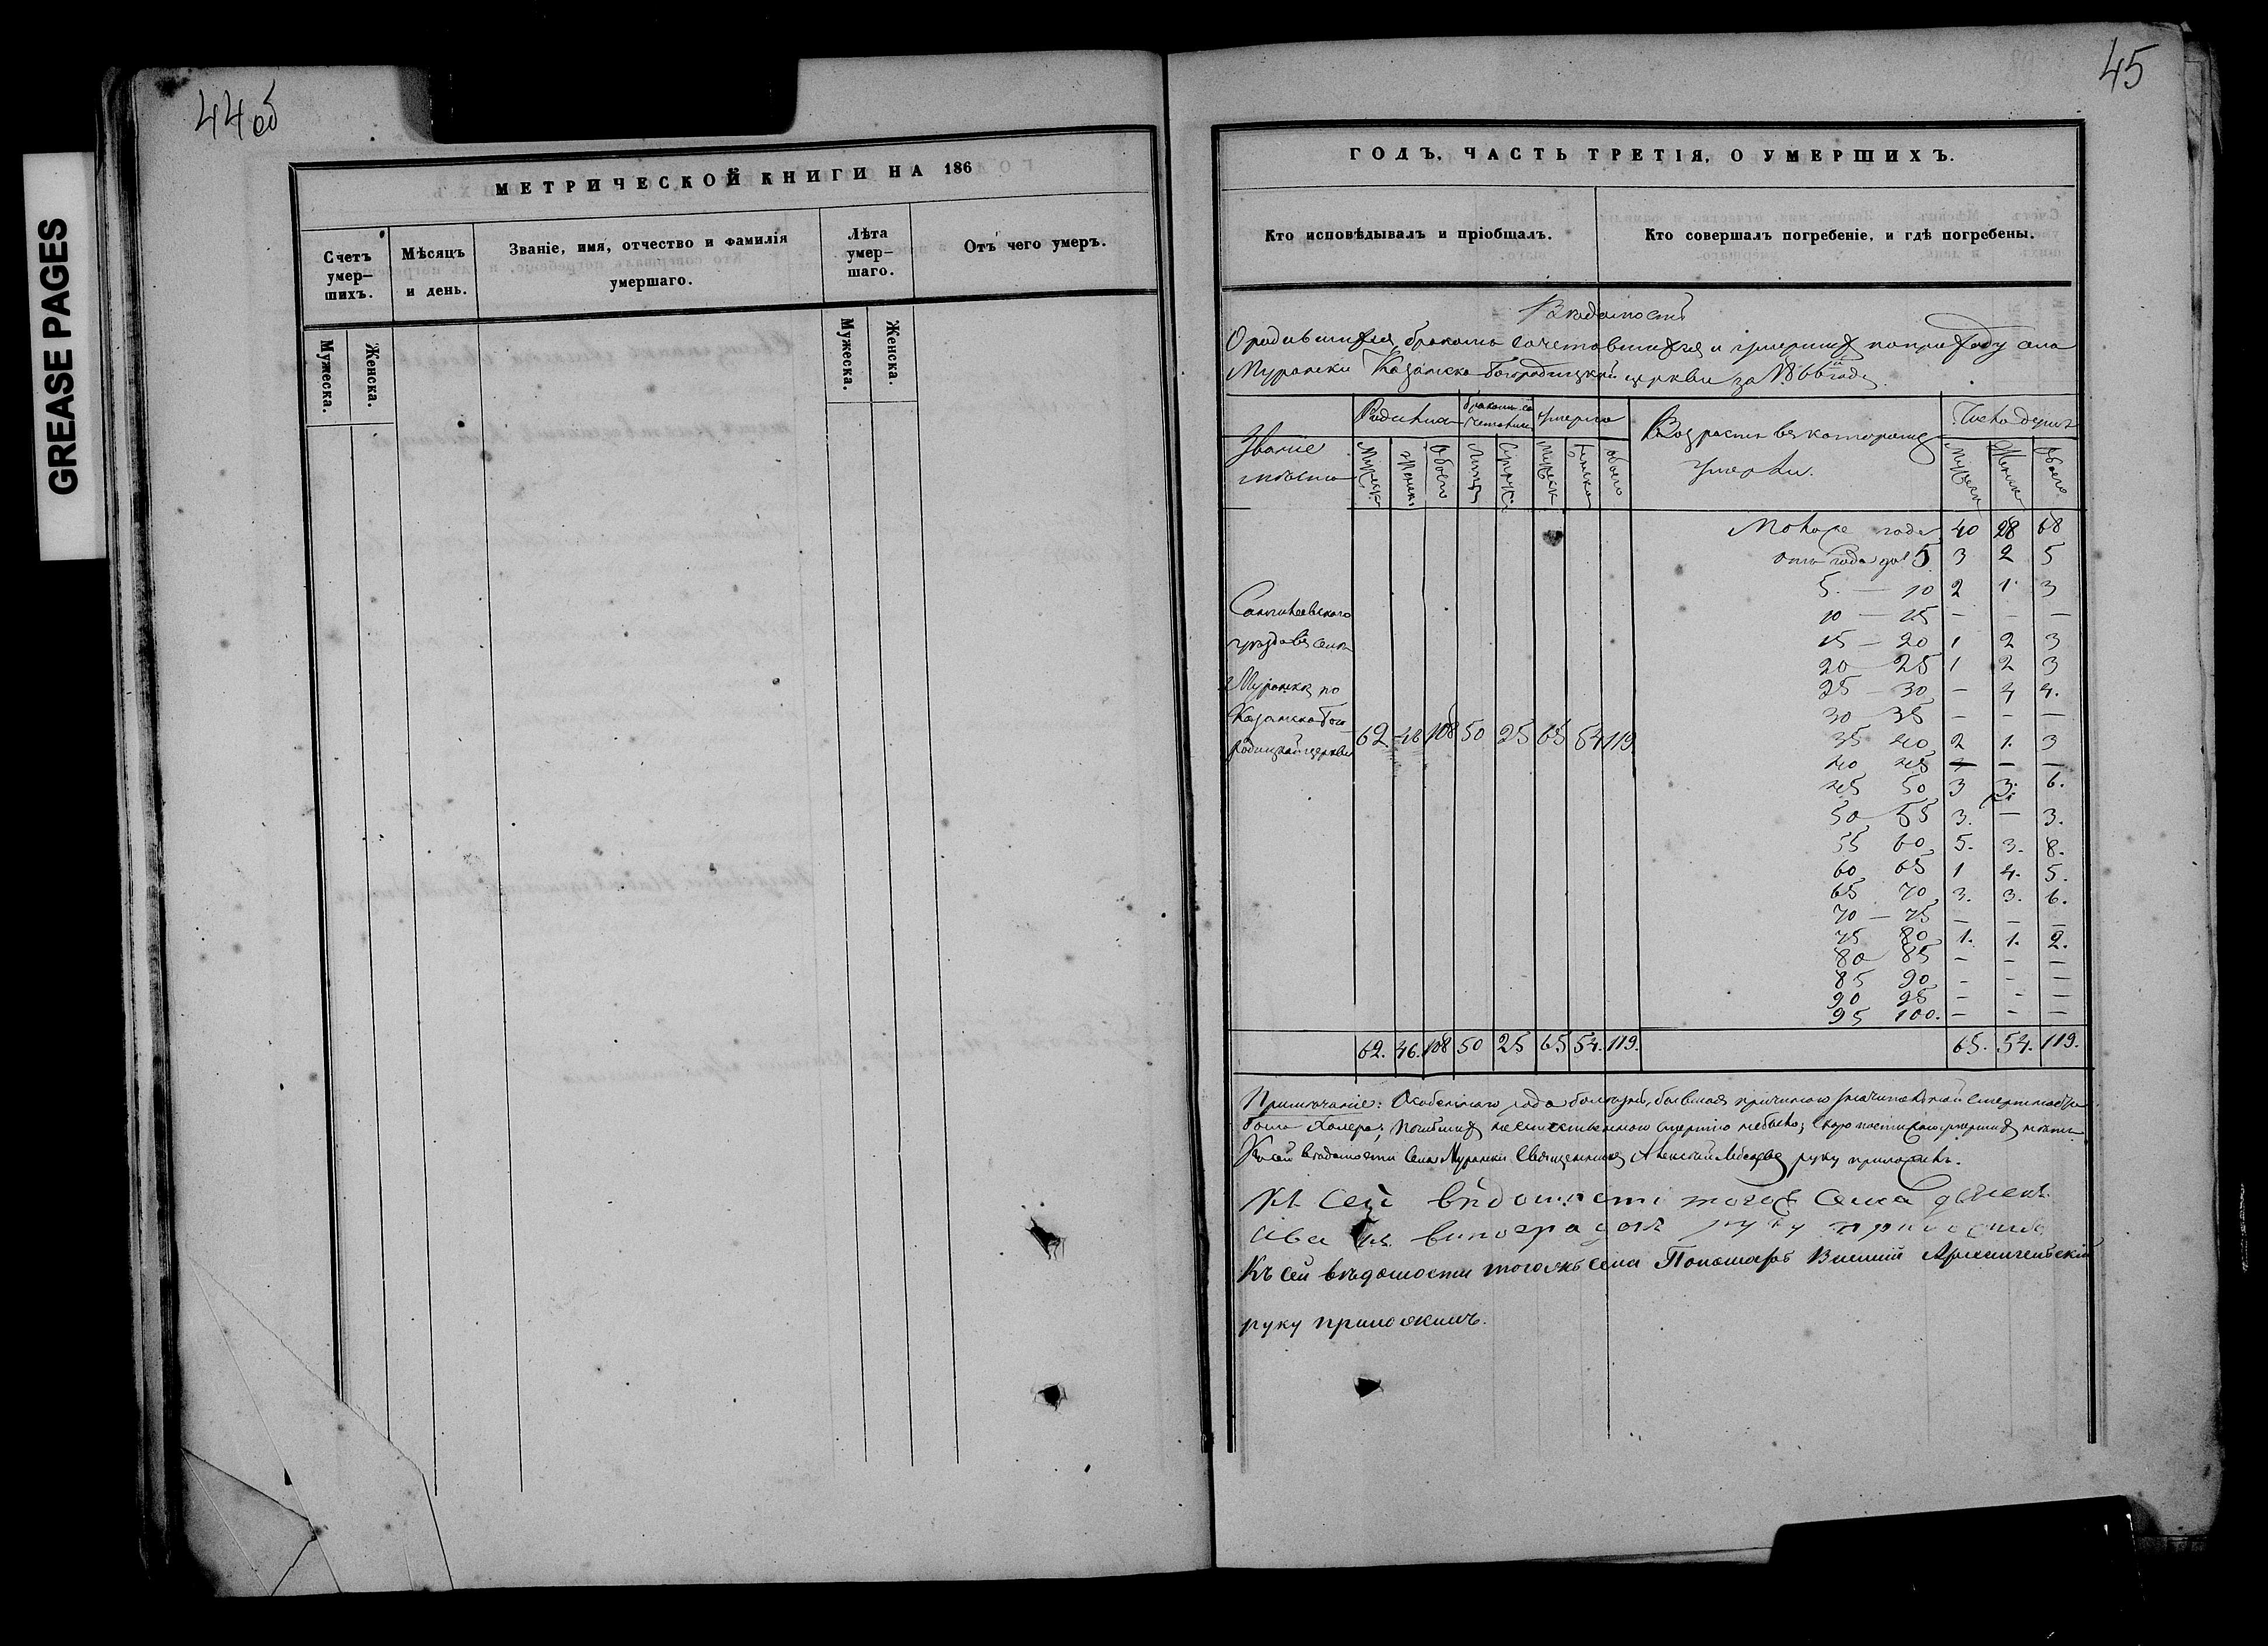 GREASE PAGES
44об
МЕТРИЧЕСКОЙ КНИГИ НА 186
Счетъ умер-шихъ.
Мѣсяцъ и день.
Званіе, имя, отчество и фамилія умершаго.
Лѣта умер-шаго.
Отъ чего умеръ.
Мужеска.
Женска.
Мужеска.
Женска.
45
ГОДЪ, ЧАСТЬ ТРЕТІЯ, О УМЕРШИХЪ.
Кто исповѣдывалъ и пріобщалъ.
Кто совершалъ погребеніе, и гдѣ погребены.
Вѣдомость
О родившихся, бракомъ сочетавшихся и умершихъ по приходу села
Муранки Казанско-Богородицкой церкви за 1866й годъ.
Званіе мѣста
Родилось
бракомъ со четалось
Умерло
Возрастъ въ которомъ умерли.
Число душъ
Мужеск
Женск
Обоего
Лицъ
Супруж
Мужеск
Женска
обоего
Мужеск
Женск
Обоего
Моложе года 40 28 68
отъ года до 5 3 2 5
5. — 10 2 1. 3
10 — 15 — — —
15 — 20 1 2 3
20 25 1 2 3
25 — 30 — 4 4.
30 35 — — —
35 40 2 1. 3
40 45 — — —
45 50 3 3. 6.
50 55 3. — 3.
55 60 5. 3. 8.
60 65 1 4. 5.
65 70 3. 3. 6.
70 — 75 — — —
75 80 1. 1. 2.
80 85 — — —
85 90 — — —
90 95 — — —
95 100. — — —
Сенгилеевскаго
уѣзда въ селѣ
Муранкѣ по
Казанско Бого
родицкой церкви
62. 46 108 50 25 65 54 119
62. 46. 108 50 25 65 54. 119. 65. 54. 119.
Примѣчаніе: Особеннаго рода болѣзнь, бывшая причиною значительной смертности
была холера; погибшихъ неестественною смертію небыло; скоропостижно умершихъ
Къ сей вѣдомости села Муранки Священникъ Алексій руку приложилъ.
Къ сей вѣдомости тогожъ села дьяконъ
Виноградовъ руку приложилъ
Къ сей вѣдомости тогожъ села Пономарь Архангельскій
руку приложилъ.